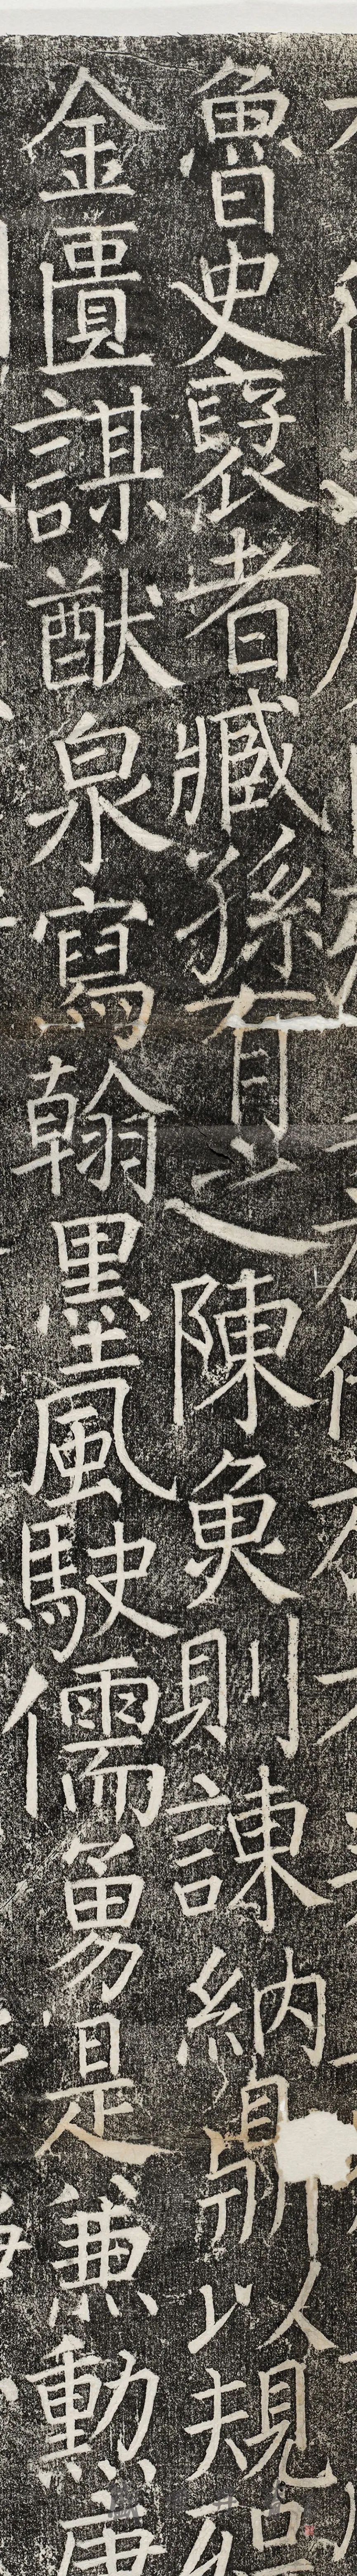 魯史褒者臧孫有之陳魚則諫納鼎以規
金匱謀猷泉寫翰墨風駛儒勇是兼勳庸